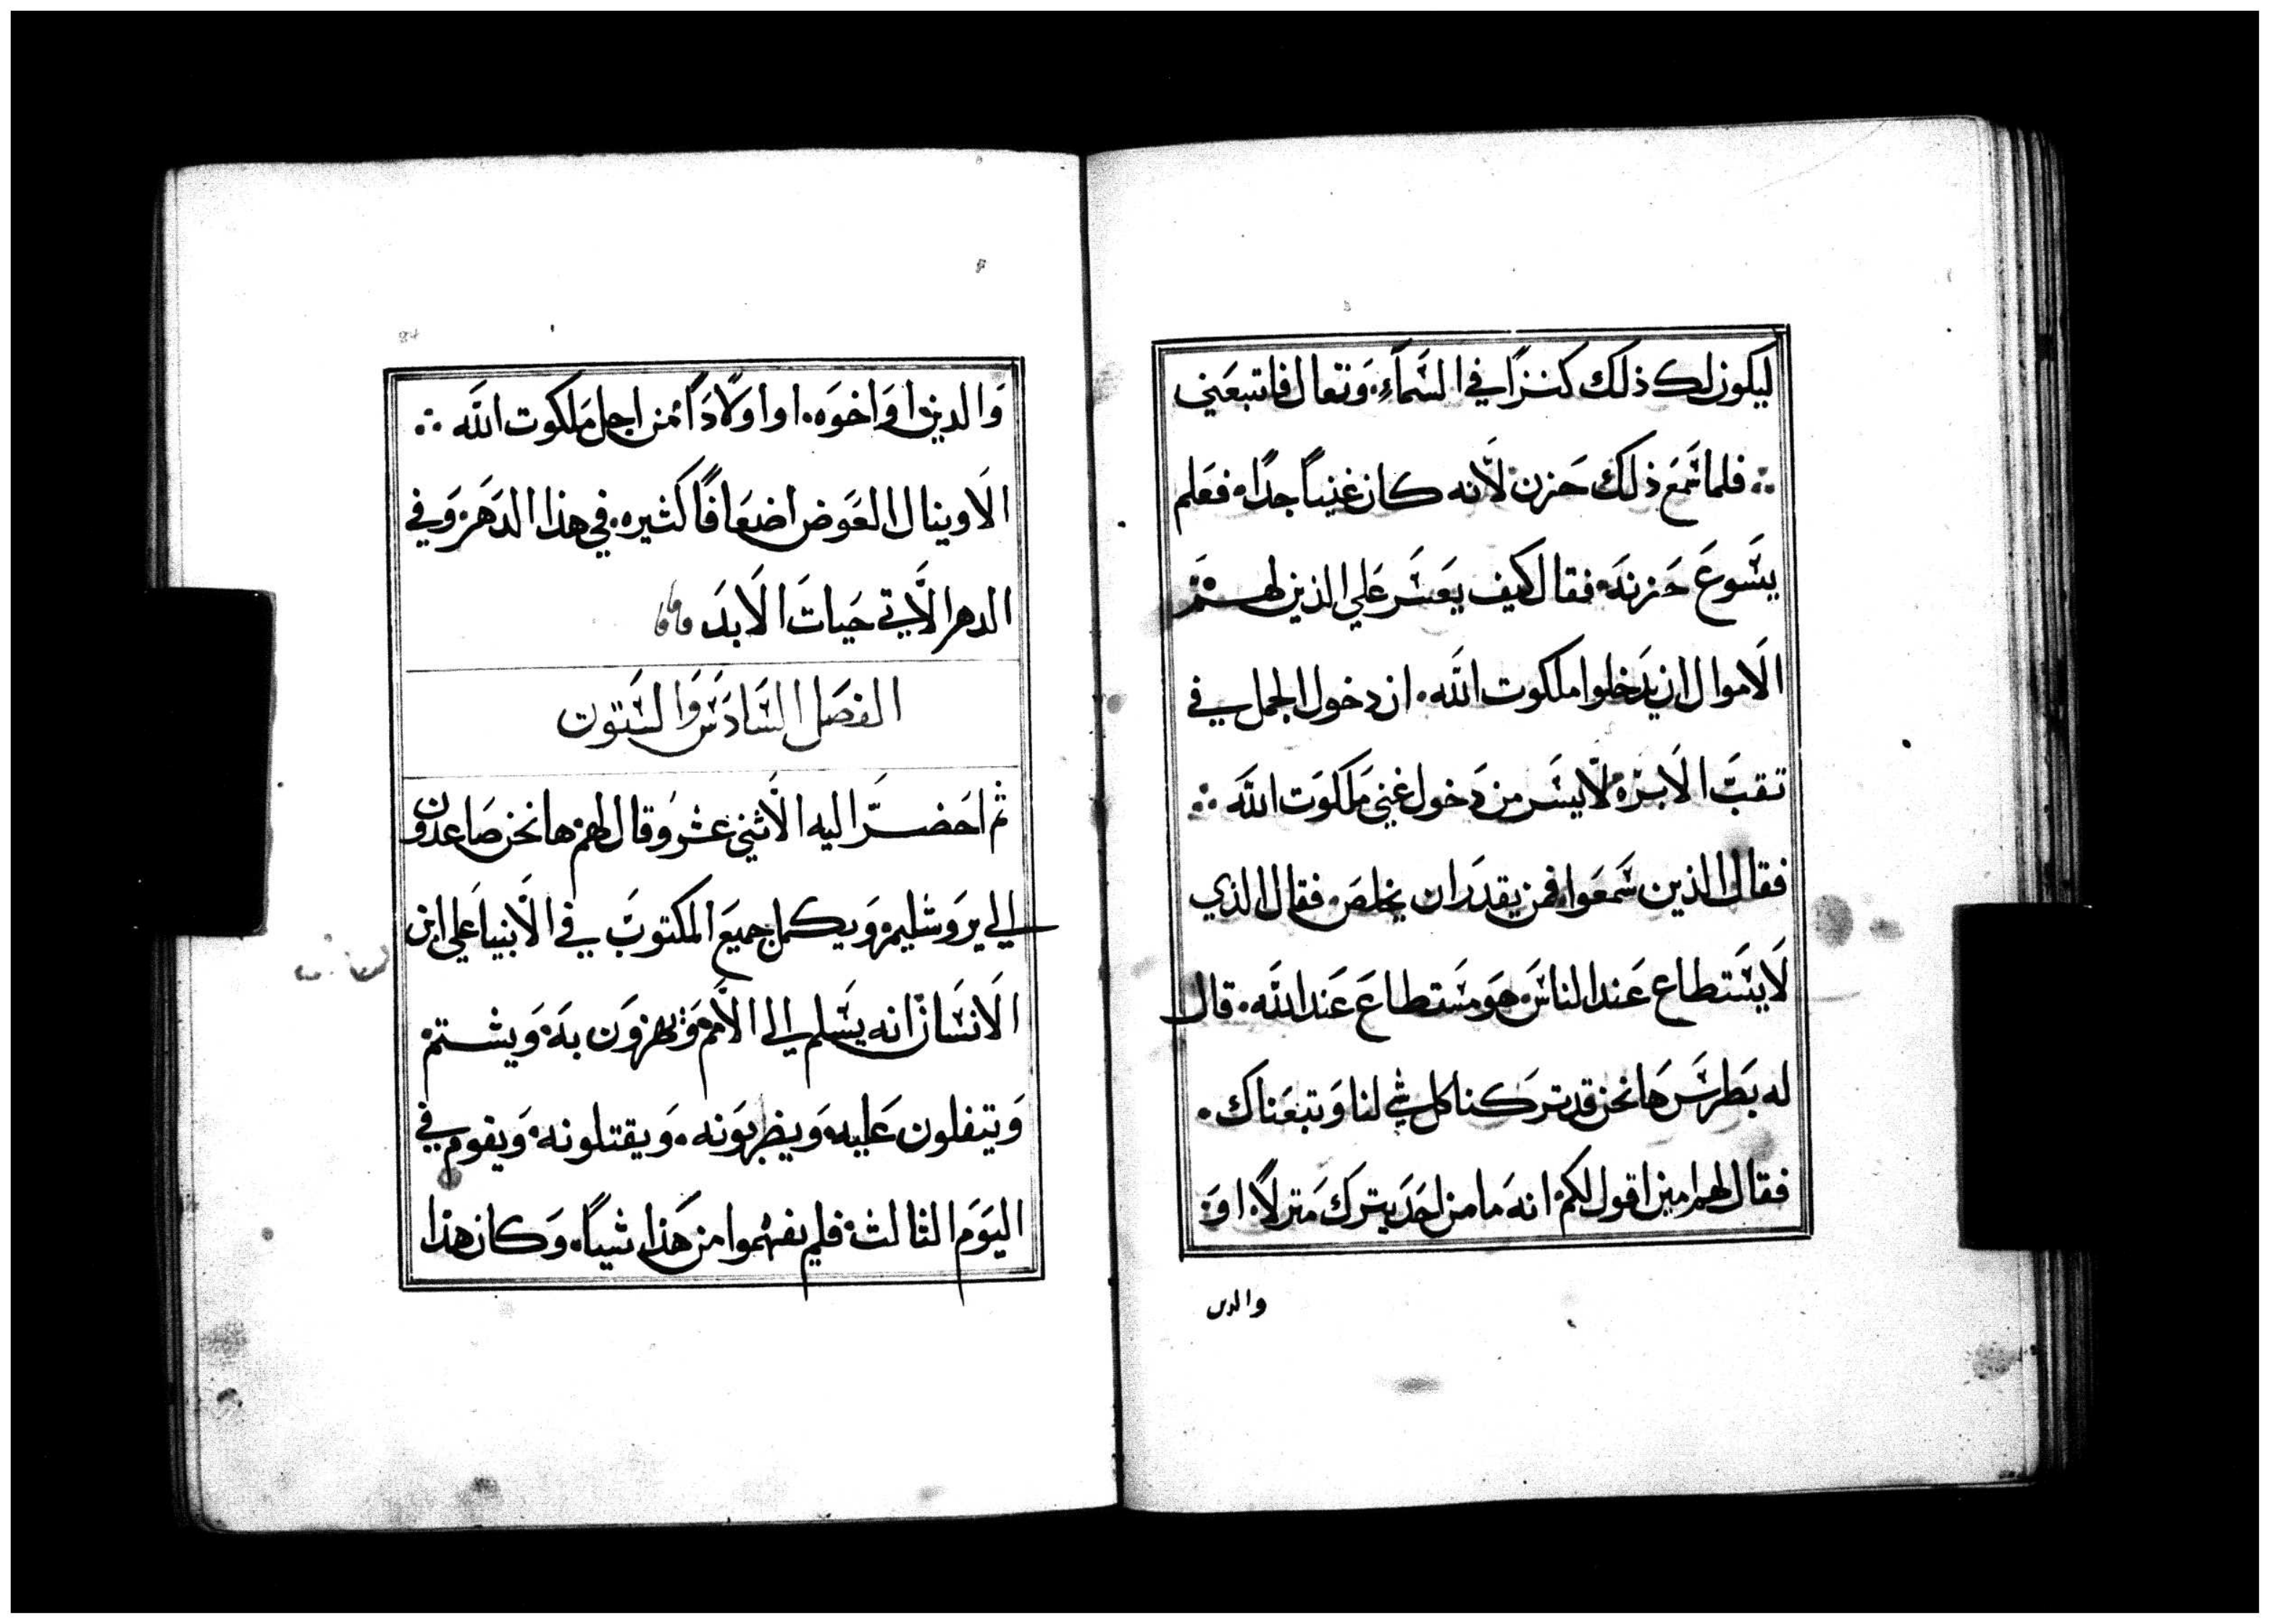 ليكون لك ذلك كنزاً في السَّمآءِ. وَتعال فاتبعَني
فلما سَمعَ ذلك حَزن لأنه كان غنياً جداً. فعَلم
يسَوعَ حَزنهَ. فقال كيف يعَسَر عَلي الذين لهَم
الاَموال ان يدَخلوا ملكوت الله. ان دخول الجمل في
تقبَ الاَبرة. لأيسَر من دَخول غني مَلكوَت الله
فقال الذين سَمعَوا فمن يقدَر ان يخلصَ. فقال الذي
لاَ يسَتطاع عَند الناسَ هوَ مسَتطاعَ عَند الله. قال
له بَطرسَ هَا نحن قد ترَكنا كل شي لنا وَتبعَناك.
فقال لهم امين اقول لكم انهَ ما من احَد يترك مَترلاً. اوَ
والدين
وَالدين اوَ اخوَه. او اوَلادَاً من اجل مَلكوت الله
الاَ وينال العَوض اضعَافاً كثيره. في هذا الدهَر. وَفي
الدهر الاَتي حَياتَ الاَبدَ
الفصَل السَادسَ وَالسَتون
ثم احَضرَ اليه الاَثني عَشر وَقال لهم ها نحن صَاعدون
الي يرَوشليم. وَيكمل جميعَ المكتوبَ في الاَنبيا عَلي ابن
الاَنسَان انه يسَلم الي الاَمم وَيهزوَن بهَ. وَيشتم
وَيتفلون عَليه. وَيضربوَنه. وَيقتلونه. وَيقوم في
اليوَم الثالث. فلم يفهموا من هَذا شياً. وَكان هذا